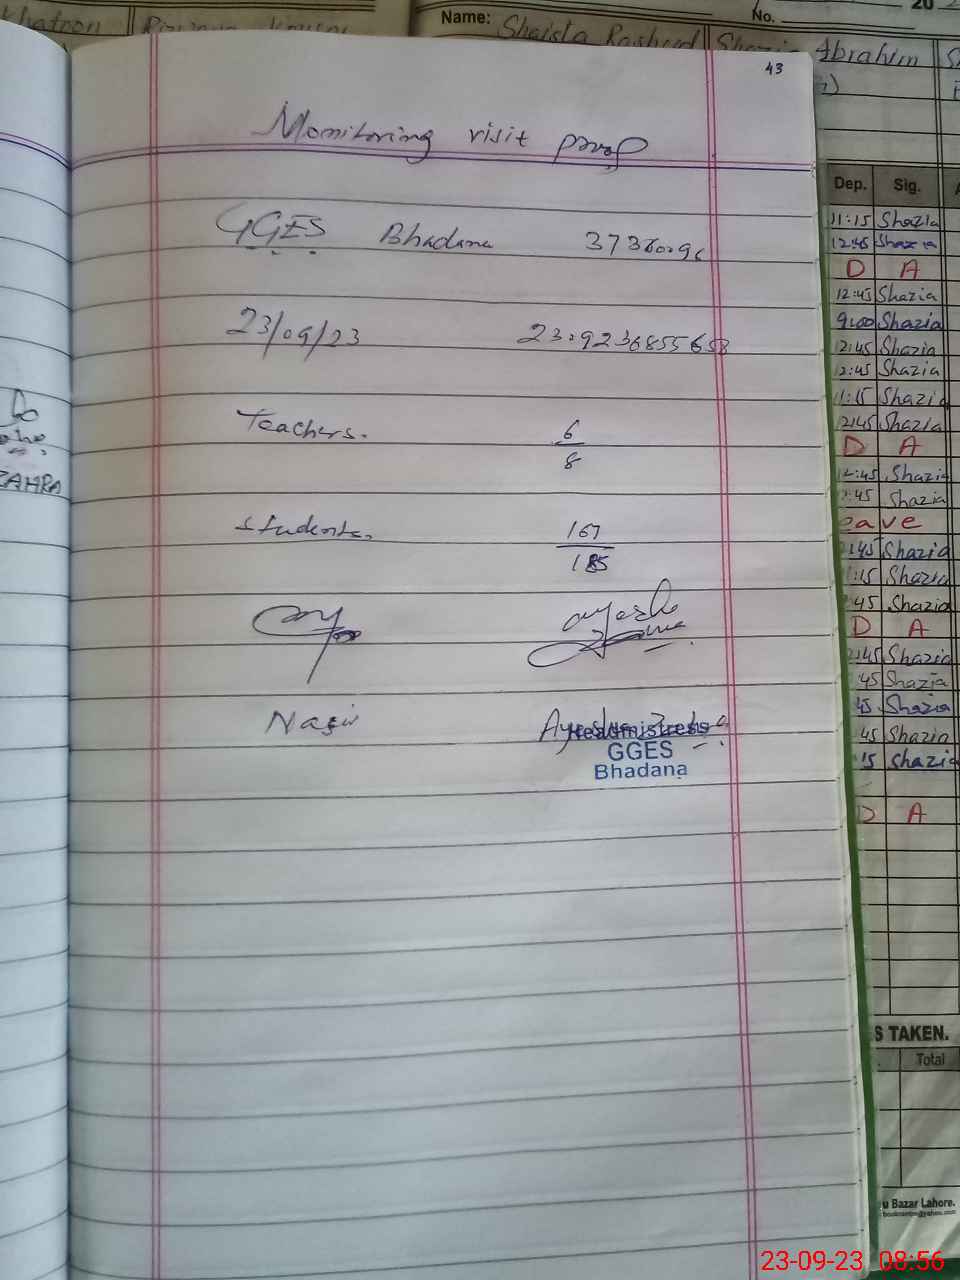 Name: Shaista Rasheed
No.
20
Ibrahim
43
Monitoring visit proof
GGES Bhadana 37380096
23/09/23 2309236855658
Teachers. 6/8
Students. 167/185
Ayesha
Nasir Ayesha
Headmistress
GGES
Bhadana
ZAHRA
Dep. Sig.
11:15 Shazia
12:45 Shazia
D A
12:45 Shazia
9:00 Shazia
12:45 Shazia
12:45 Shazia
11:15 Shazia
12:45 Shazia
D A
12:45 Shazia
:45 Shazia
eave
:45 Shazia
:15 Shazia
:45 Shazia
D A
:45 Shazia
45 Shazia
45 Shazia
45 Shazia
15 Shazia
D A
S TAKEN.
Total
u Bazar Lahore.
23-09-23 08:56